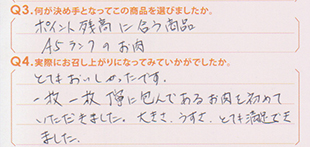 Q3.何が決め手となってこの商品を選びましたか。
ポイント残高に合う商品
A5ランクのお肉
Q4.実際にお召し上がりになってみていかがでしたか。
とてもおいしかったです。
一枚一枚 に包んであるお肉を初めて
いただきました。大きさ、うすさ、とても満足でき
ました。